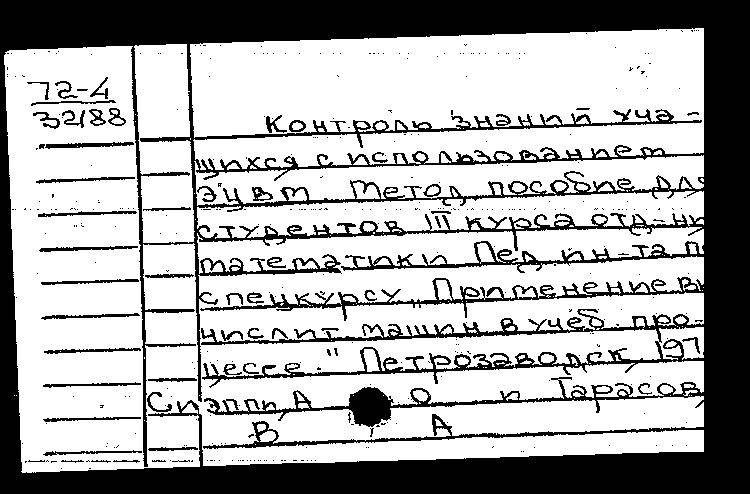 72-4
32188
Контроль знаний уча-
щихся с использованием
ЭЦВМ. Метод. пособие для
студентов III курса отд-ни
математики Пед. ин-та п
спецкурсу „Применение вы
числит. машин в учеб. про-
цессе." Петрозаводск, 197
А О и Тарасов,
В А